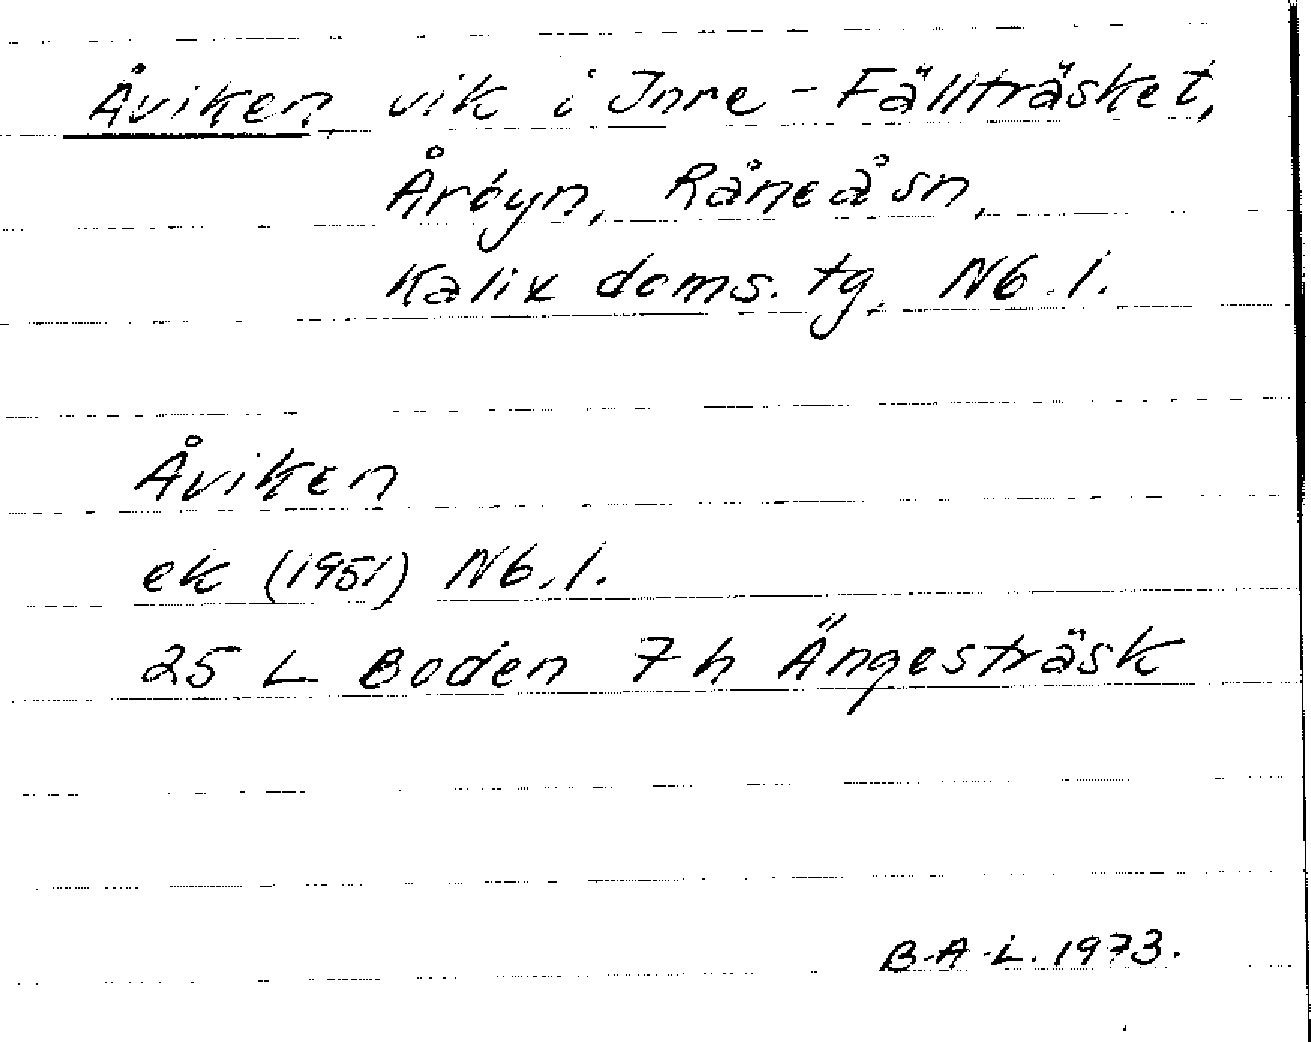 Åviken, vik i Inre-Fällträsket,
Årbyn, Råneå sn,
Kalix doms. tg, Nb. l.
Åviken
ek (1951) Nb. l.
25 L Boden 7 h Ängesträsk
B-A-L. 1973.